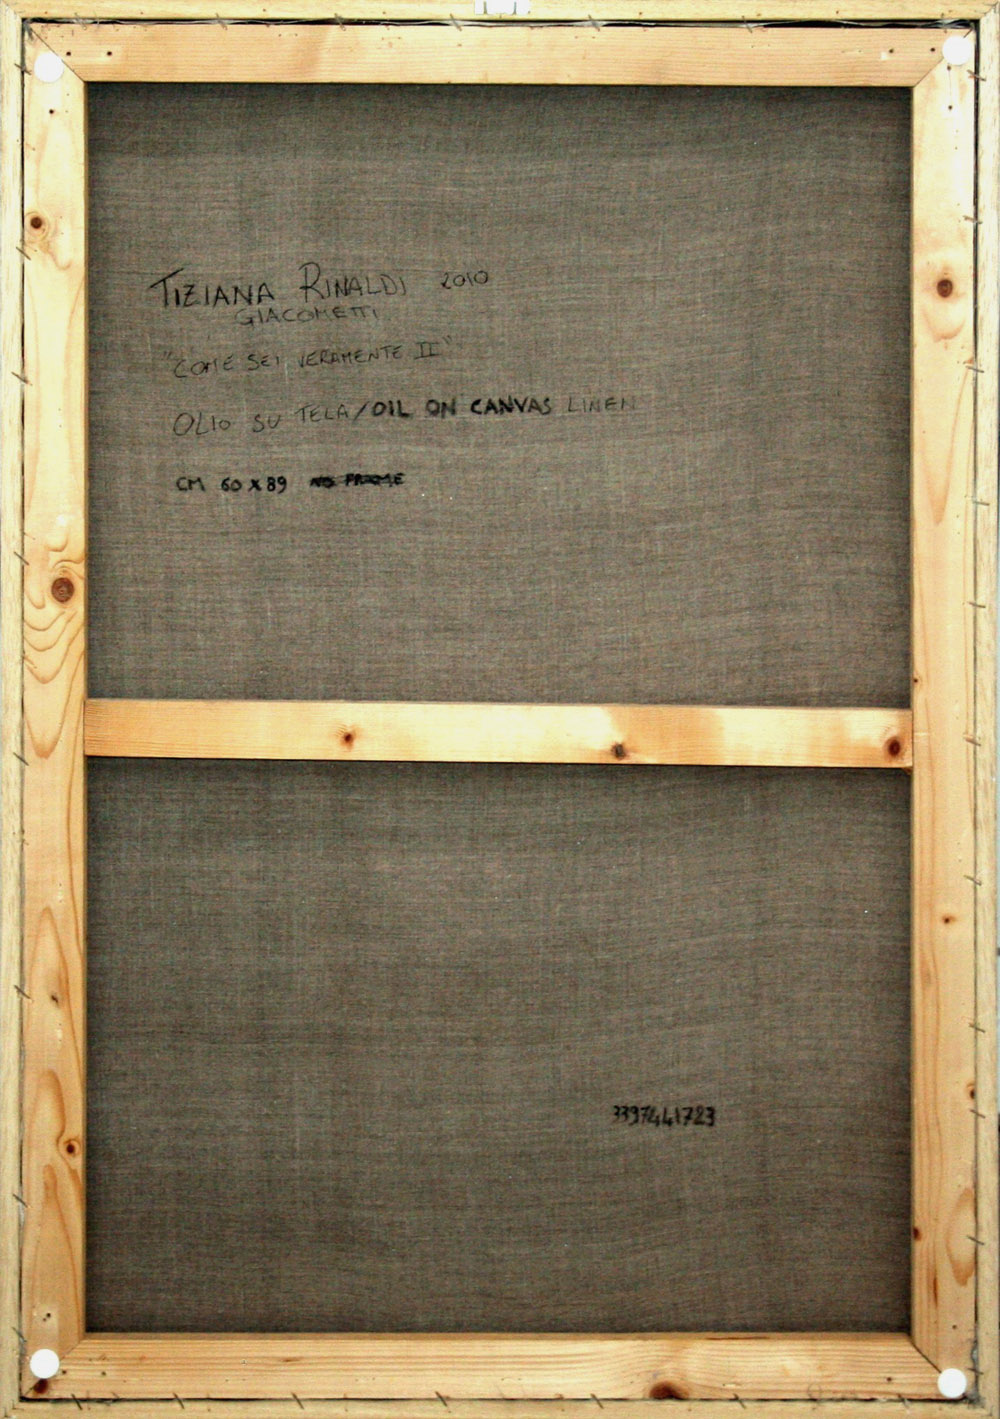 TIZIANA RINALDI 2010
GIACOMETTI
"COME SEI VERAMENTE II"
OLIO SU TELA/OIL ON CANVAS LINEN
CM 60 X 89 NO FRAME
3397441723